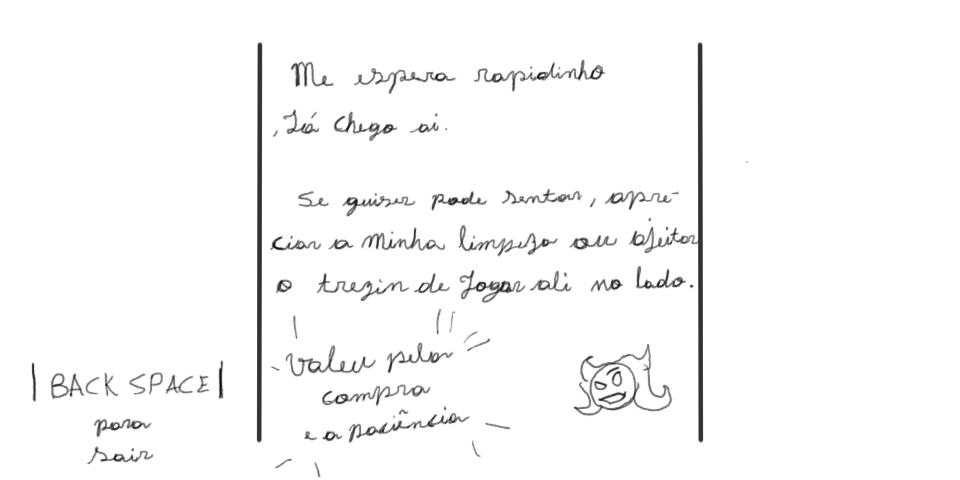 Me espera rapidinho
, Já chego ai.
Se quiser pode sentar, apre-
ciar a minha limpeza ou ajeitar
o trezin de jogar ali no lado.
Valeu pela
compra
e a paciência
|BACK SPACE|
para
sair